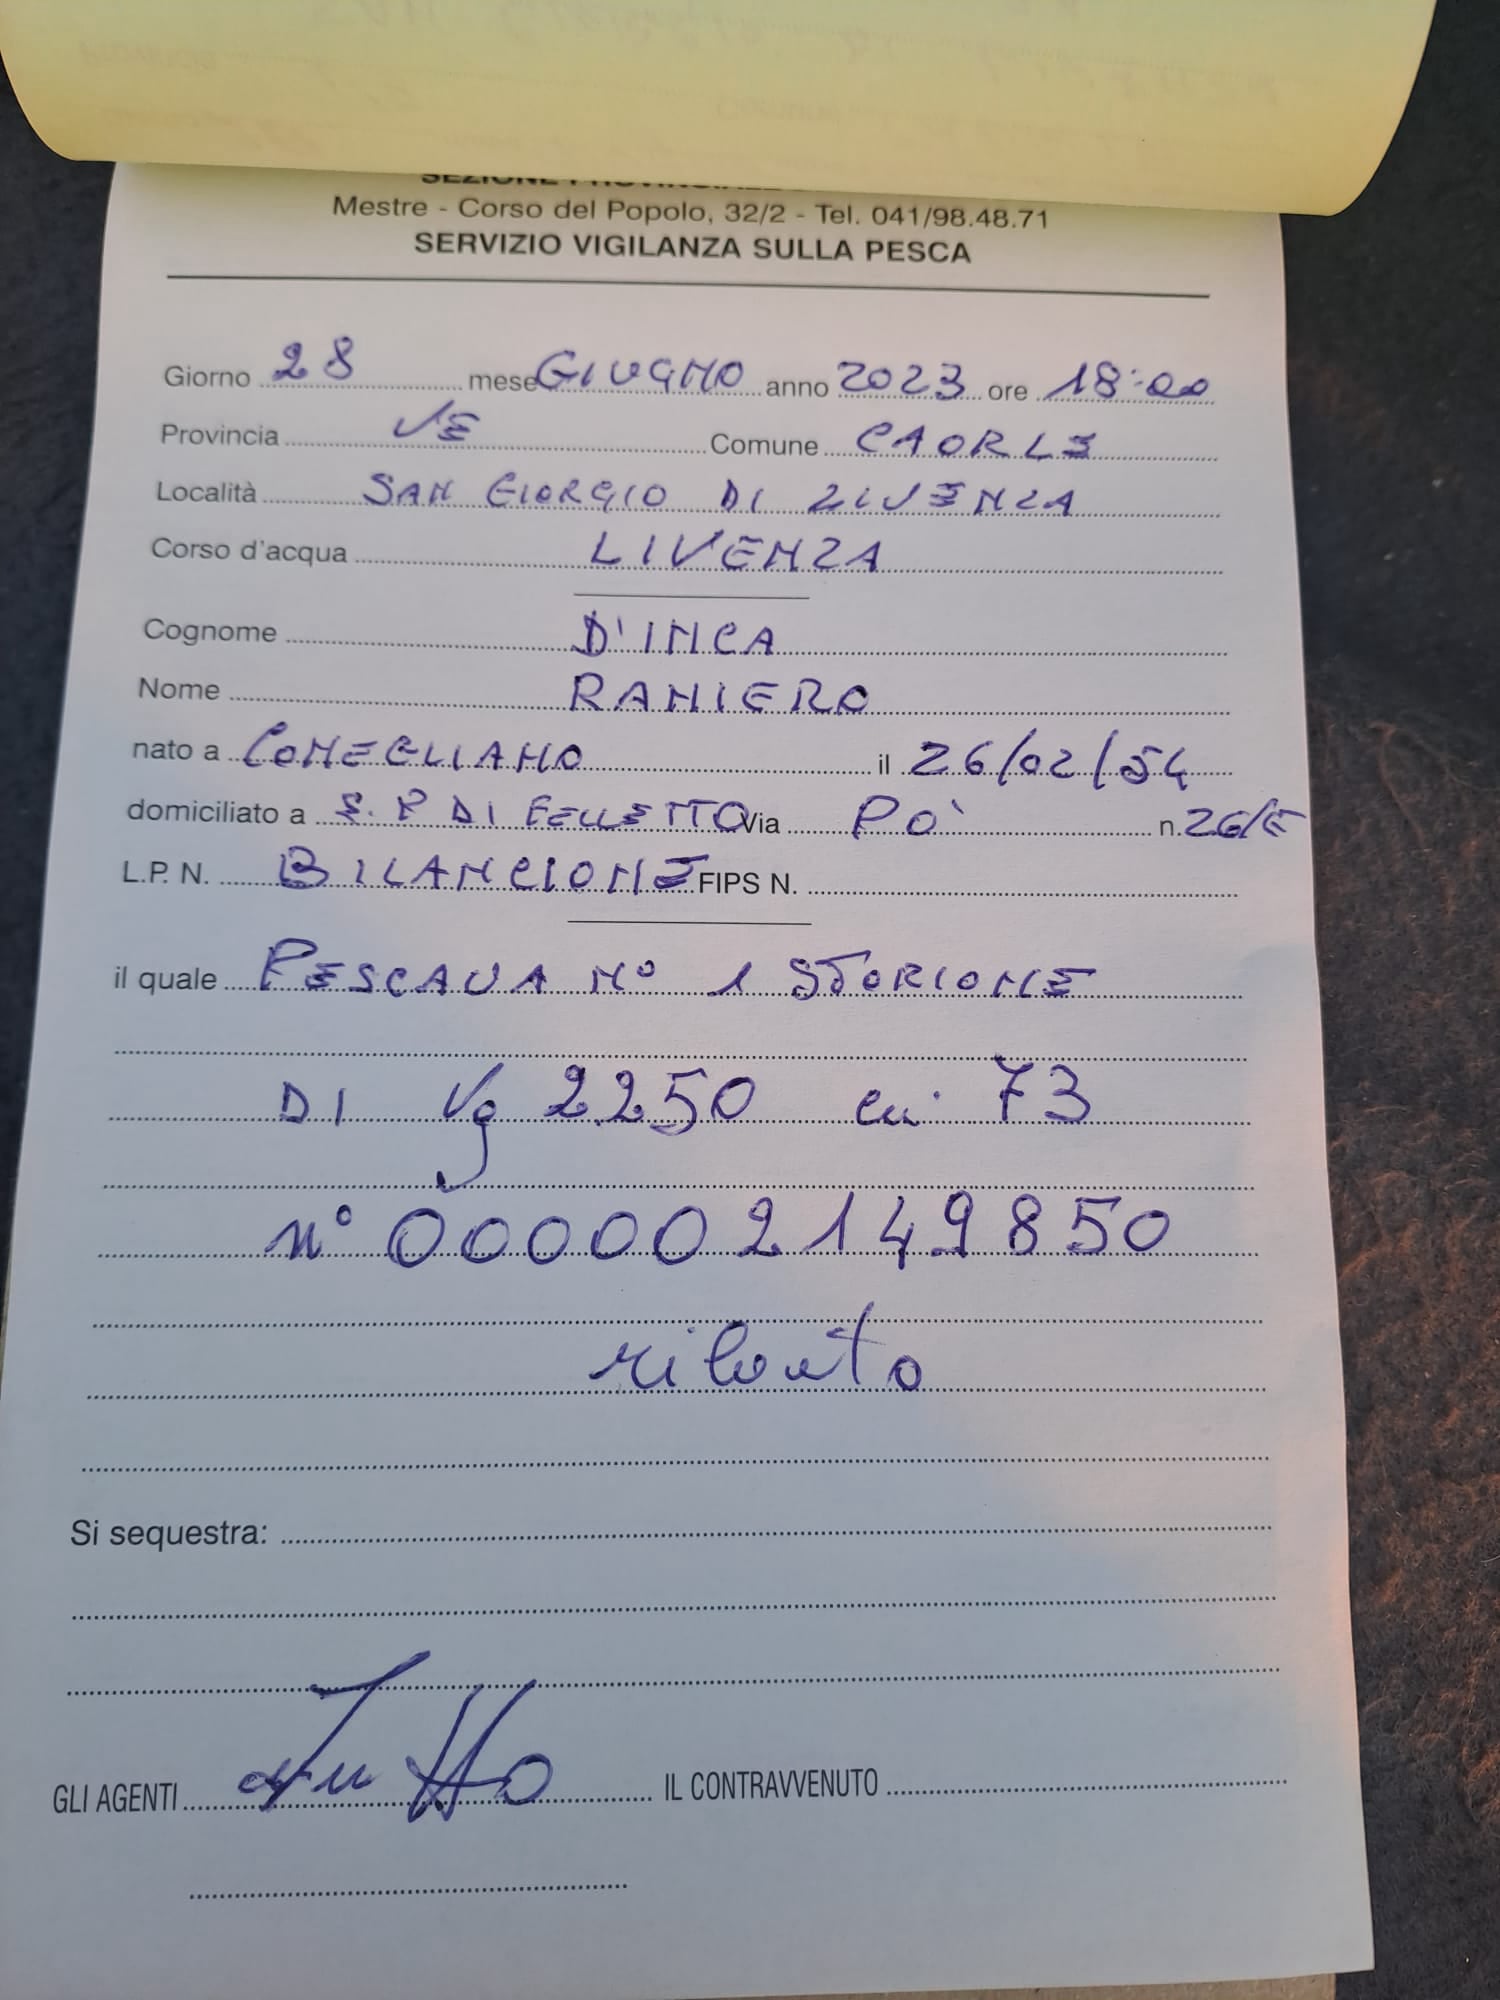 Mestre - Corso del Popolo, 32/2 - Tel. 041/98.48.71
SERVIZIO VIGILANZA SULLA PESCA
Giorno 28 mese GIUGNO anno 2023 ore 18:00
Provincia VE Comune CAORLE
Località SAN GIORGIO DI LIVENZA
Corso d'acqua LIVENZA
Cognome D'INCA
Nome RANIERO
nato a CONEGLIANO il 26/02/54
domiciliato a S. P DI FELLETTO Via PO' n. 26/E
L.P. N. BILANCIONE FIPS N.
il quale PESCAVA N° 1 STORIONE
DI Kg 2250 cm. 73
n° 000002149850
Si sequestra:
GLI AGENTI IL CONTRAVVENUTO